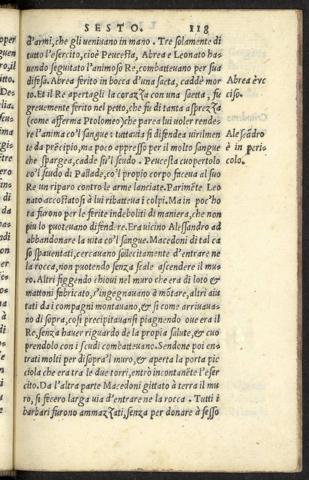 SESTO. 118
d'armi, che gli venivano in mano. Tre solamente di
tutto l'esercito, cioè Peucesta, Abrea e Leonato ha=
vendo seguitato l'animoso Re, combattevano per sua
difesa. Abrea ferito in bocca d'una saeta, caddè mor
to. Et il Re apertagli la corazza con una saetta, fu
grevemente ferito nel petto, che fu di tanta asprezza
(come afferma Ptolomeo) che parea lui voler rende=
re l'anima co'l sangue & tuttavia si difendea virilmen
te da principio, ma poco appresso per il molto sangue
che spargea, cadde su'l scudo. Peucesta cuopertolo
co'l scudo di Pallade, co'l proprio corpo faceva al suo
Re un riparo contro le arme lanciate. Parimẽte Leo
nato accostatosi à lui ributteva i colpi. Ma in poc'ho
ra furono per le ferite indeboliti di maniera, che non
piu lo puotevano difendere. Era vicino Alessandro ad
abbandonare la vita co'l sangue. Macedoni di tal ca
so spaventati, cercavano sollecitamente d'entrare ne
la rocca, non puotendo senza scale ascendere il mu=
ro. Altri figgendo chiovi nel muro che era di loto &
mattoni fabricato, s'ingegnavano à mõtare, altri aiu
tati da i compagni montavano, & si come arrivava=
no di sopra, così precipitavansi piagnendo ove era il
Re, senza haver riguardo de la propria salute, & cuo
prendolo con i scudi combattevano. Sendone poi en=
trati molti per disopra'l muro, & aperta la porta pic
ciola che era tra le due torri, entrò incontanẽte l'eser
cito. Da l'altra parte Macedoni gittato à terra il mu
ro, si fecero larga via d'entrare ne la rocca. Tutti i
barbari furono ammazzati, senza per donare à sesso
Abrea è uc
ciso.
Alesãdro
è in peri
colo.